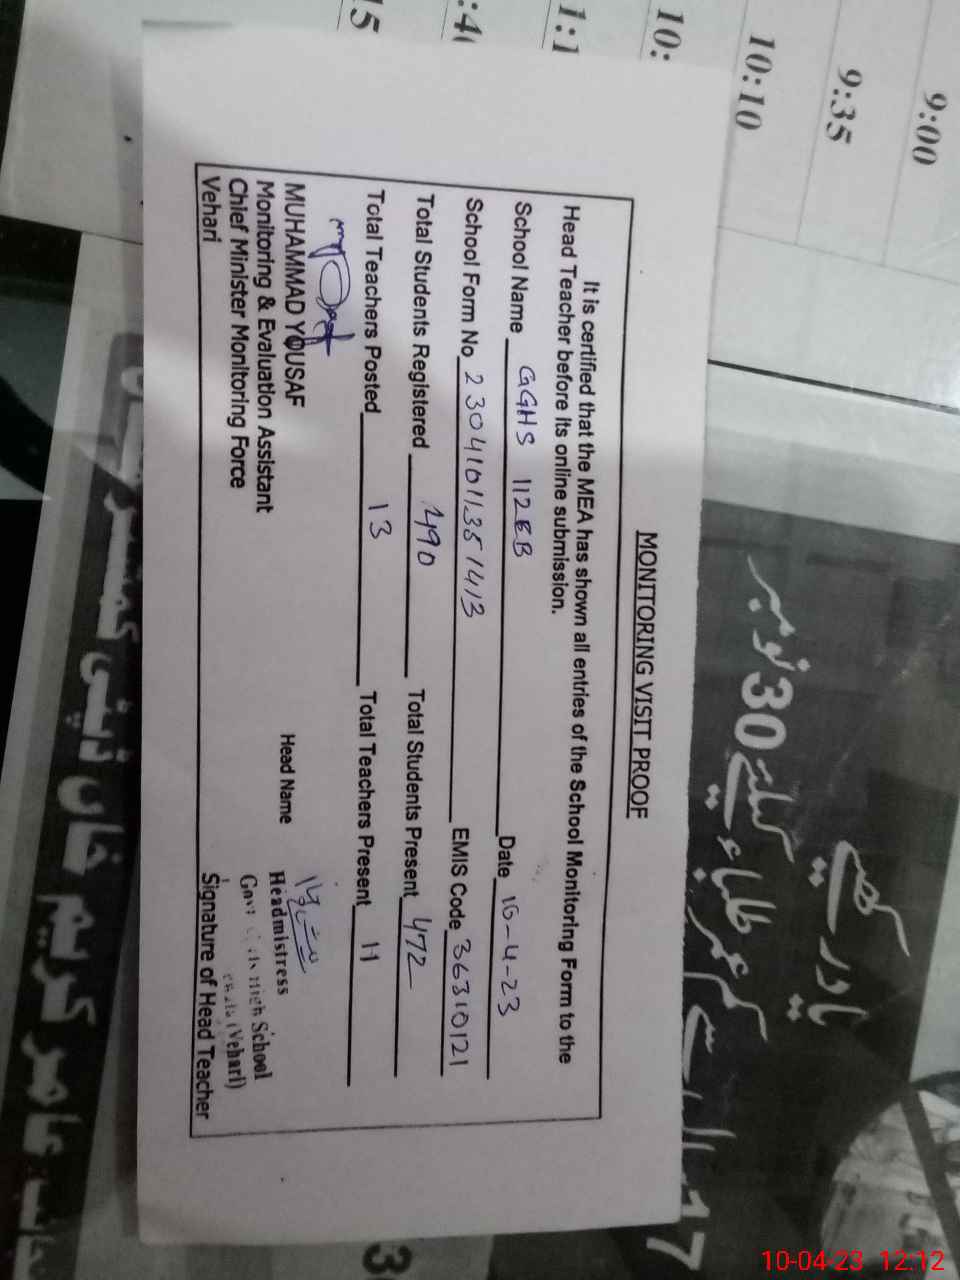 MONITORING VISIT PROOF
It is certified that the MEA has shown all entries of the School Monitoring Form to the
Head Teacher before its online submission.
School Name GGHS 112EB Date 10-4-23
School Form No 23041011351413 EMIS Code 36310121
Total Students Registered 490 Total Students Present 472
Total Teachers Posted 13 Total Teachers Present 11
MUHAMMAD YOUSAF Head Name
Monitoring & Evaluation Assistant Headmistress
Chief Minister Monitoring Force High School
(Vehari)
Vehari Signature of Head Teacher
9:00
9:35
10:10
10:
1:1
:4
15
یاد رکھیے
کیلئے 30 نومبر
17
3
10-04-23 12:12